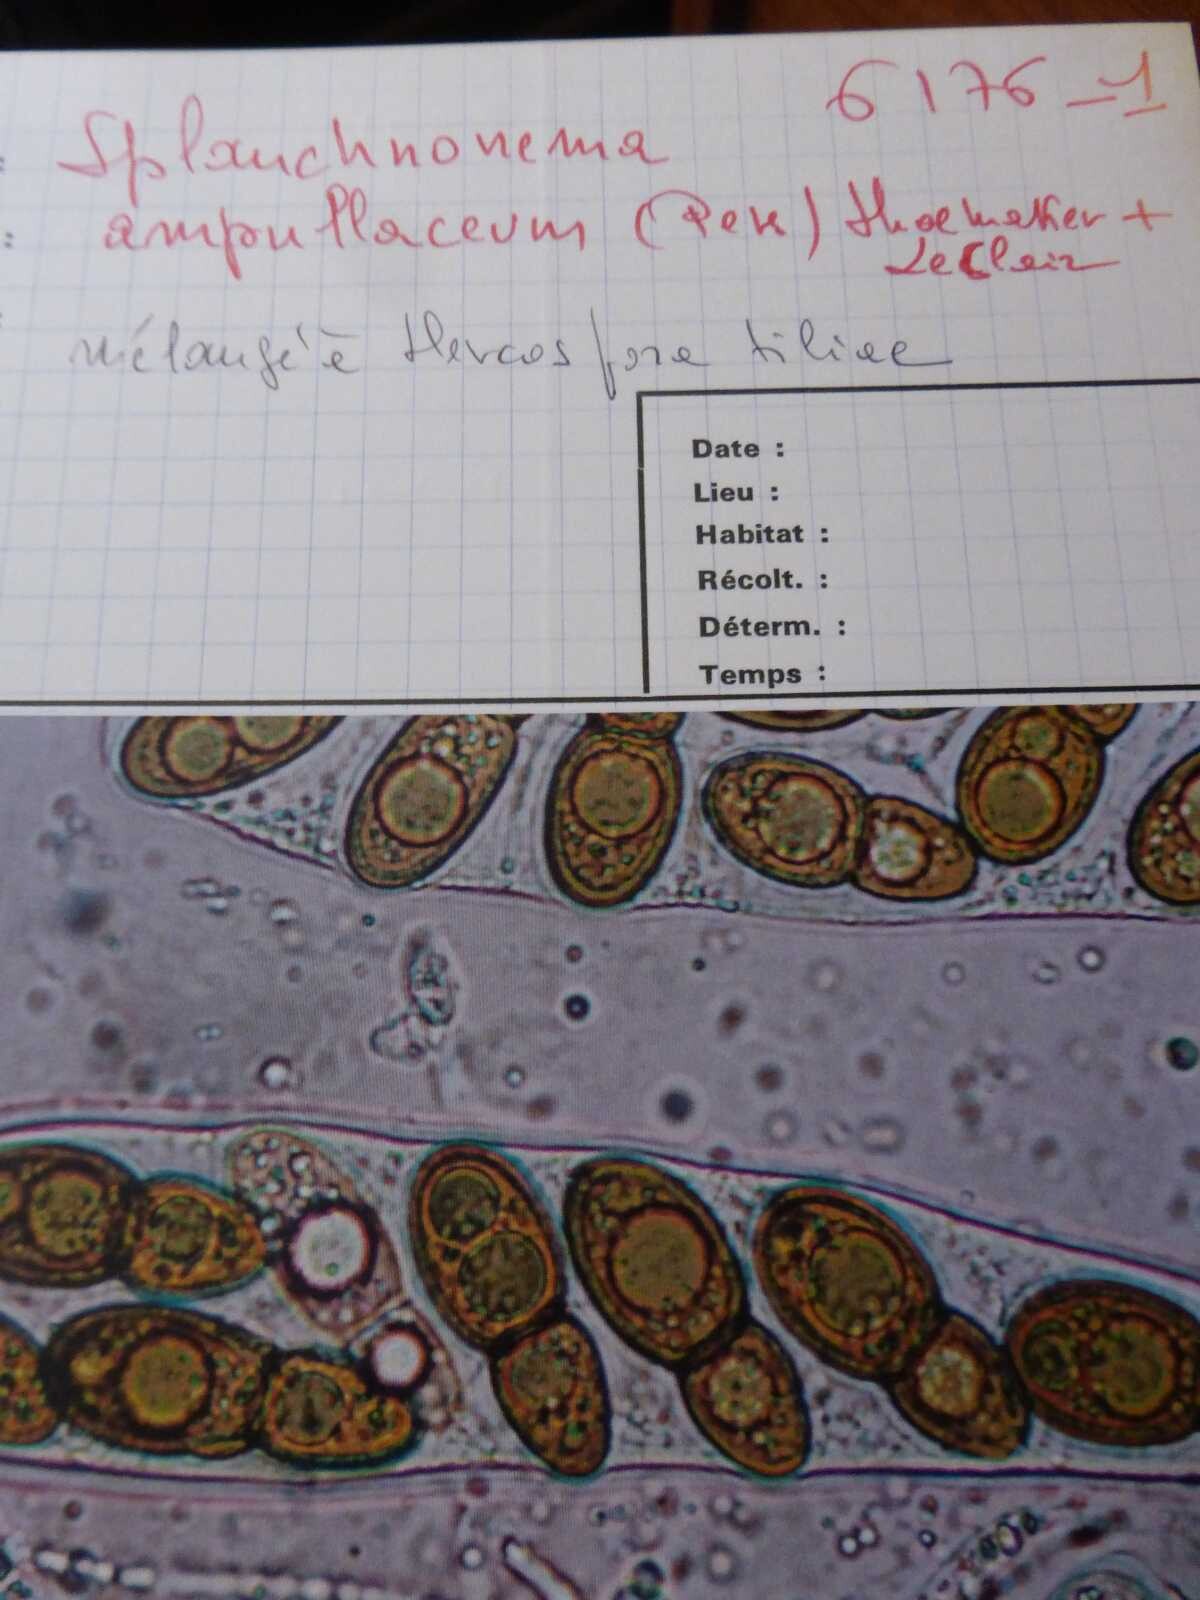 6176-1
: Splanchnonema
: ampullaceum (Pers) Shoemaker +
LeClair
mélangé à Hercospora tiliae
Date :
Lieu :
Habitat :
Récolt. :
Déterm. :
Temps :